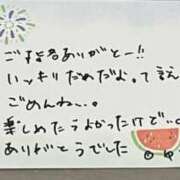 ご指名ありがとー!!
いっキリだめだよ。って言え
ごめんね、。
楽しめたらよかったけど…
ありがとうでした